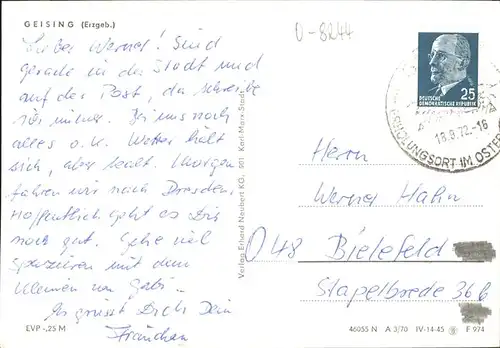 GEISING (Erzgeb.)
0-8244
Lieber Werner! Sind
gerade in der Stadt und
auf der Post, da schreibe
immer. Bei uns noch
alles o.k. Wetter hält
sich, aber kalt. Morgen
fahren wir nach Dresden.
Hoffentlich geht es Dir
noch gut. Gehe viel
spazieren mit dem
Kleinen von Gabi.
Es grüsst Dich Dein
Frauchen
EVP -,25 M
Verlag Erhard Neubert KG, 901 Karl-Marx-Stadt
25
DEUTSCHE
DEMOKRATISCHE REPUBLIK
18.9.72-16
ERHOLUNGSORT IM OSTE
Herrn
Werner Hahn
048 Bielefeld
Stapelbrede 36 b
46055 N A 3/70 IV-14-45 F 974